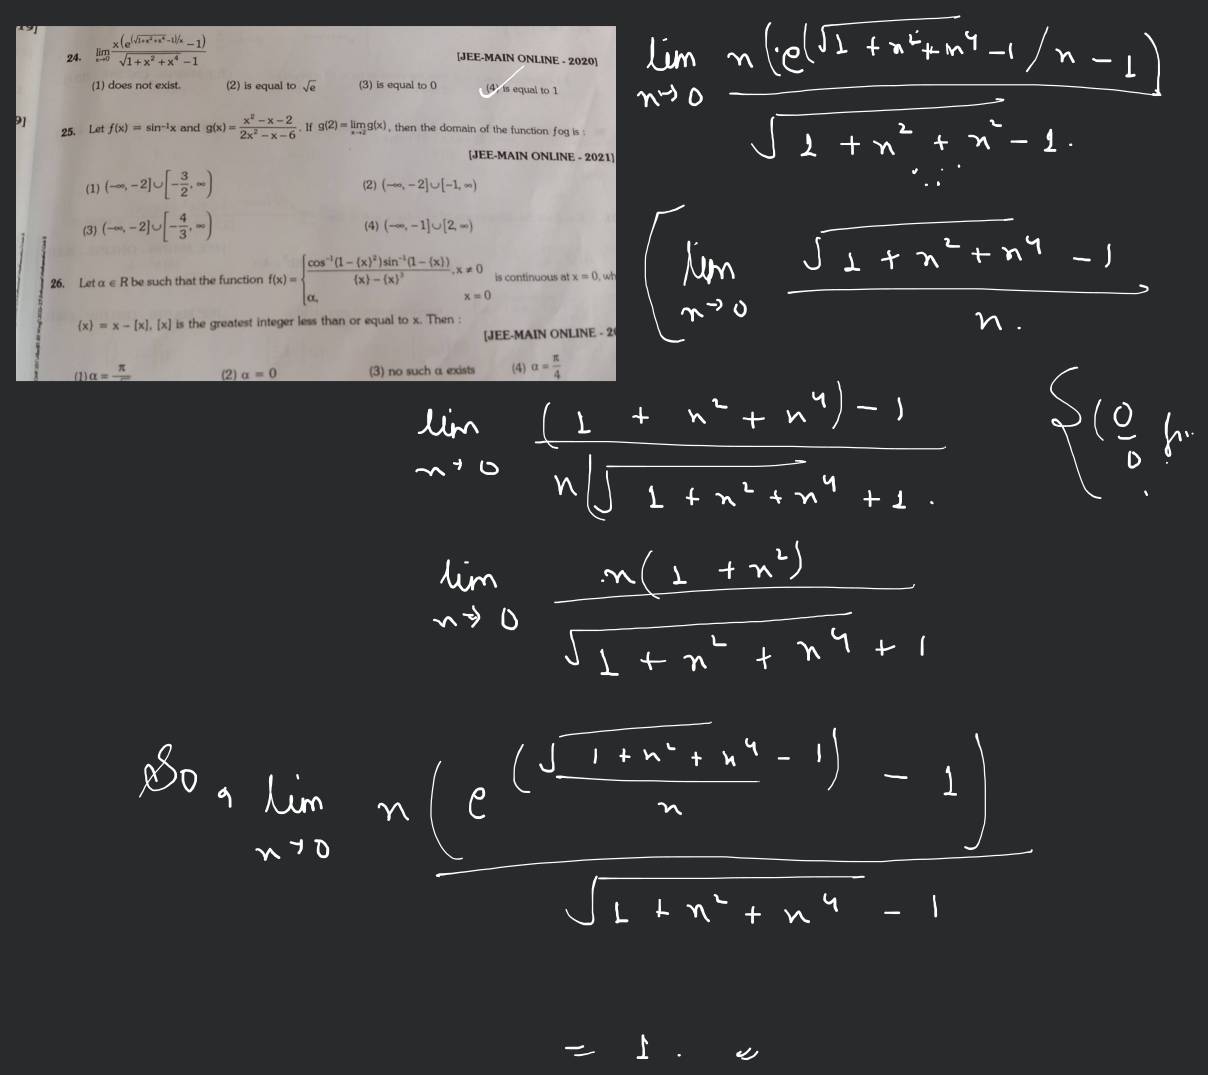 24. lim x→0 x(e^((√1+x²+x⁴ -1)/x) -1) / √1+x²+x⁴ -1
[JEE-MAIN ONLINE - 2020]
(1) does not exist. (2) is equal to √e (3) is equal to 0 (4) is equal to 1
9]
25. Let f(x) = sin⁻¹x and g(x) = x² - x - 2 / 2x² - x - 6. If g(2) = lim x→2 g(x), then the domain of the function fog is :
[JEE-MAIN ONLINE - 2021]
(1) (-∞, -2]∪[-3/2, ∞) (2) (-∞, -2]∪[-1, ∞)
(3) (-∞, -2]∪[-4/3, ∞) (4) (-∞, -1]∪[2, ∞)
26. Let α ∈ R be such that the function f(x) = { cos⁻¹(1-{x}²)sin⁻¹(1-{x}) / {x}-{x}³, x ≠ 0
α, x = 0
is continuous at x = 0, wh
{x} = x - [x], [x] is the greatest integer less than or equal to x. Then :
[JEE-MAIN ONLINE - 2
(1) α = π (2) α = 0 (3) no such α exists (4) α = π/4
lim n→0 n(e(√1 + n² + n⁴ -1/n - 1) / √1 + n² + n² - 1.
( lim n→0 √1 + n² + n⁴ - 1 / n.
lim n→0 (1 + n² + n⁴) - 1 / n(√1 + n² + n⁴ + 1.
{ (0/0
lim n→0 n(1 + n²) / √1 + n² + n⁴ + 1
So, lim n→0 n(e^((√1 + n² + n⁴ - 1)/n) - 1) / √1 + n² + n⁴ - 1
= 1.